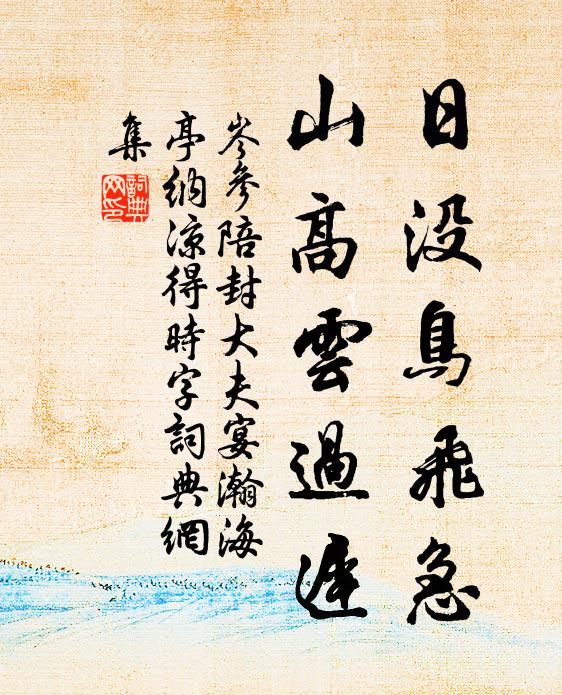 日没鳥飛急
山高雲過遲
岑參陪封大夫宴瀚海
亭納凉得時字詞典網
集
詞典
网印